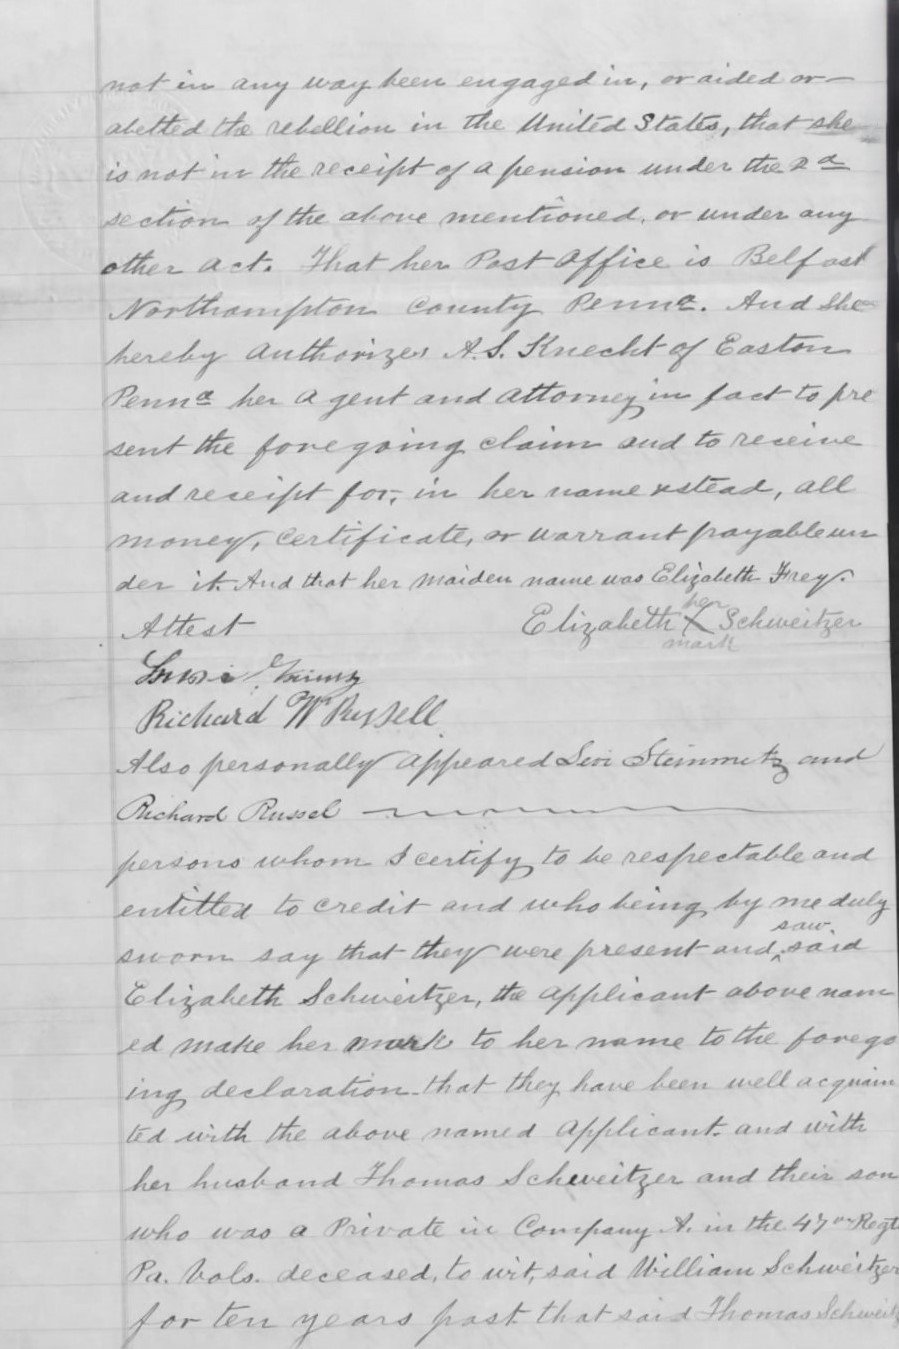 not in any way been engaged in, or aided or—
abetted the rebellion in the United States, that she
is not in the receipt of a pension under the 2d
section of the above mentioned, or under any
other act. That her Post Office is Belfast
Northampton County Penna. And She
hereby Authorizes A.S. Knecht of Easton
Penna her Agent and Attorney in fact to pre
sent the foregoing claim and to receive
and receipt for, in her name & stead, all
money, certificate, or warrant payable un
der it. And that her maiden name was Elizabeth Frey.
Attest Elizabeth her X mark Schweitzer
Richard W Russell
Also personally appeared Levi Steinmetz and
Richard Russel
persons whom I certify to be respectable and
entitled to credit and who being by me duly
sworn say that they were present and saw said
Elizabeth Schweitzer, the applicant above nam
ed make her mark to her name to the forego
ing declaration. that they have been well acquain
ted with the above named Applicant. and with
her husband Thomas Schweitzer and their son
who was a Private in Company A. in the 47" Regt
Pa. Vols. deceased, to wit, said William Schweitzer
for ten years past that said Thomas Schweitz